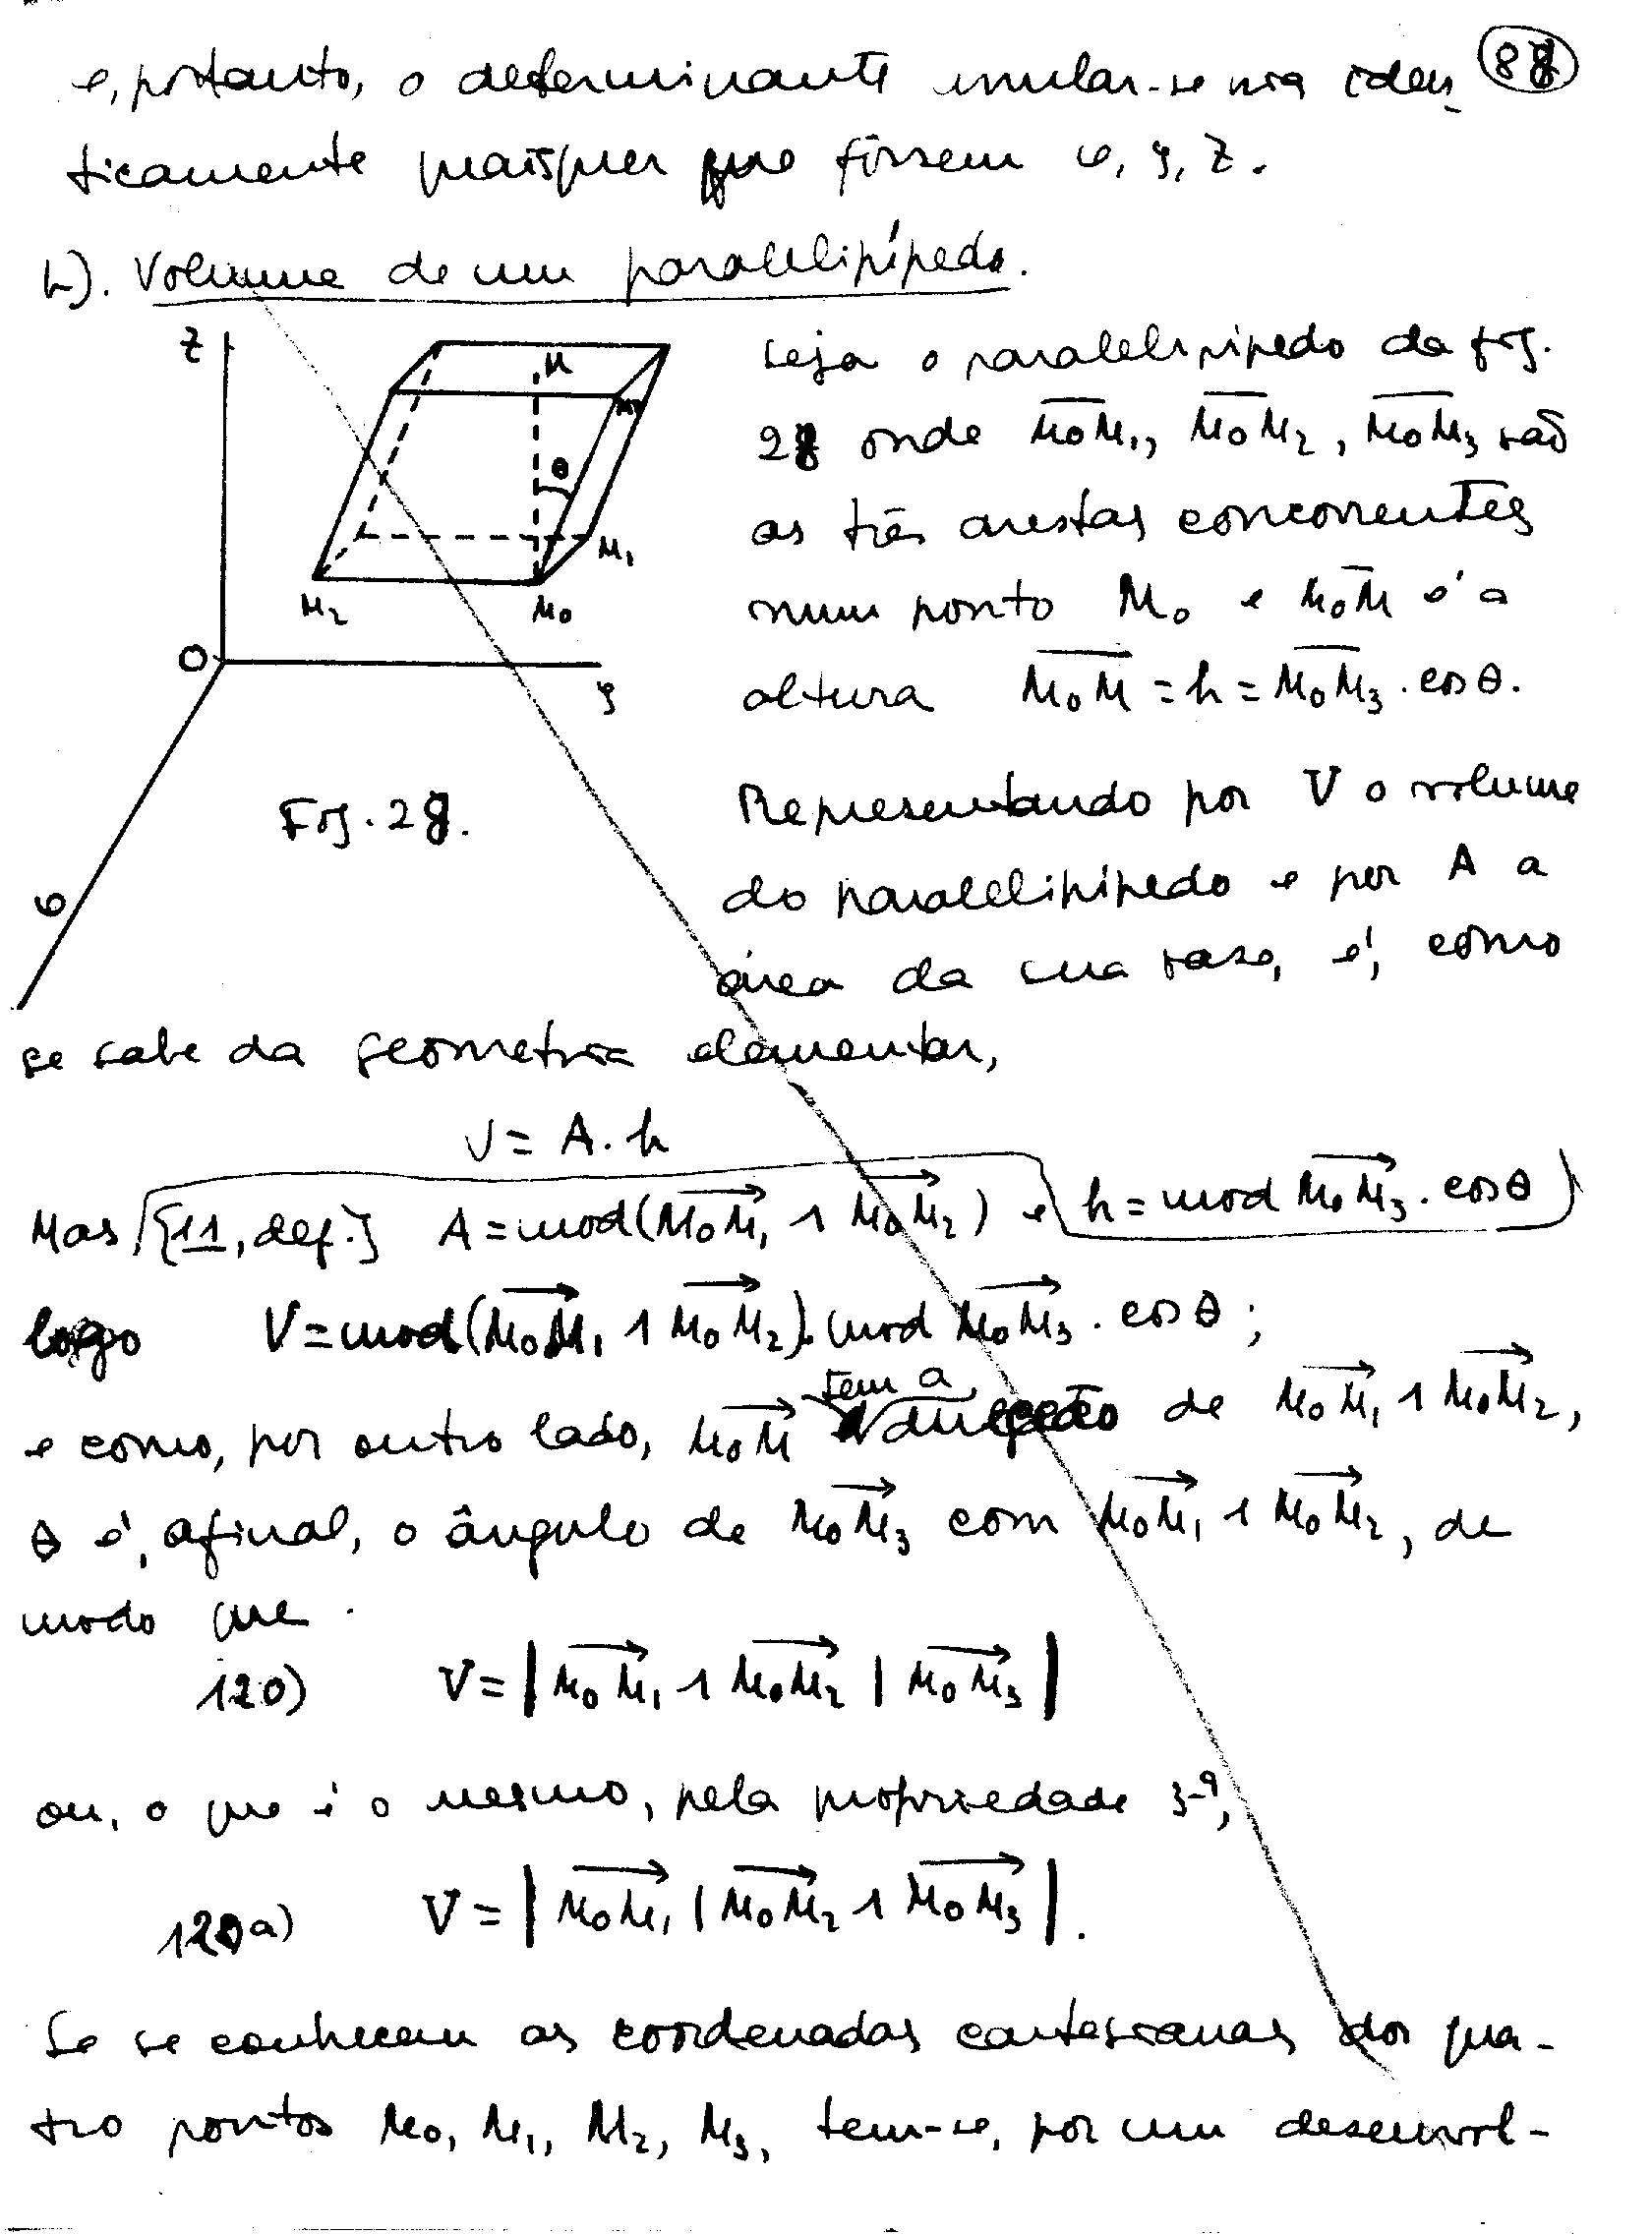 88
e, portanto, o determinante anular-se-ia iden
ticamente quaisquer que fôssem x, y, z.
h). Volume de um paralelipípedo.
Seja o paralelipípedo da fig.
28 onde M₀M₁, M₀M₂, M₀M₃ são
as três arestas concorrentes
num ponto M₀ e M₀M é a
altura M₀M = h = M₀M₃ . cos θ.
z
M
M₃
θ
M₁
M₂
M₀
O
y
x
Fig. 28.
Representando por V o volume
do paralelipípedo e por A a
área da sua base, é, como
se sabe da geometria elementar,
V = A . h
Mas {[11, def.]} A = mod(M₀M₁ ∧ M₀M₂) e h = mod M₀M₃ . cos θ
logo V = mod(M₀M₁ ∧ M₀M₂). mod M₀M₃ . cos θ ;
e como, por outro lado, M₀M tem a direcção de M₀M₁ ∧ M₀M₂,
θ é, afinal, o ângulo de M₀M₃ com M₀M₁ ∧ M₀M₂, de
modo que
120) V = | M₀M₁ ∧ M₀M₂ | M₀M₃ |
ou, o que é o mesmo, pela propriedade 3ª,
120a) V = | M₀M₁ | M₀M₂ ∧ M₀M₃ | .
Se se conhecem as coordenadas cartesianas dos qua-
tro pontos M₀, M₁, M₂, M₃, tem-se, por um desenvol-